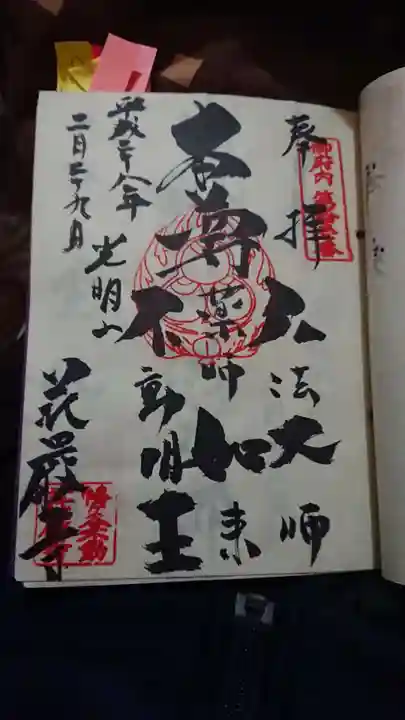 奉拝
弘法大師
本尊
薬師如来
不動明王
平成二十八年
二月二十九日
光明山
華厳寺
御府内